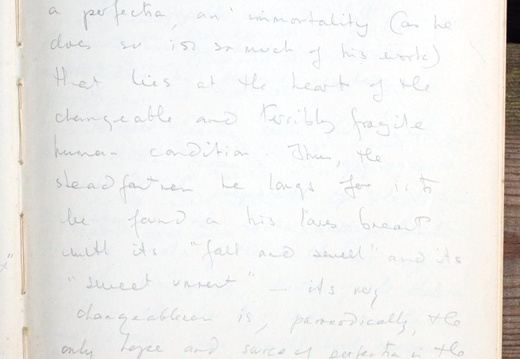 a perfection, an immortality (as he
does so in so much of his work)
that lies at the heart of the
changeable and terribly fragile
human condition. Thus, the
steadfastness he longs for is to
be found in his love's breast
with its "fall and swell" and its
"sweet unrest" — its very
changeableness is, paradoxically, the
only hope and source of perfection in the